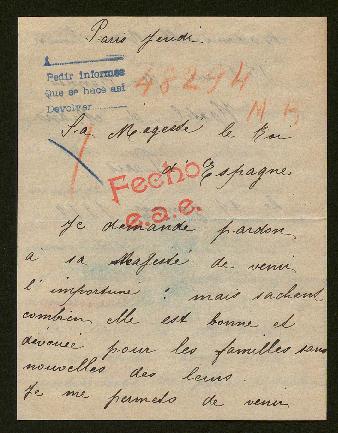 Paris Jeudi.
A
Pedir informes
Que se hace así
Devolver
48294
Sa Magesté le Roi
d'Espagne
Fecho
e.a.e.
Je demande pardon
à sa Majesté de venir
l'importuné : mais sachent
combien elle est bonne et
dévouée pour les familles sans
nouvelles des leurs.
Je me permets de venir